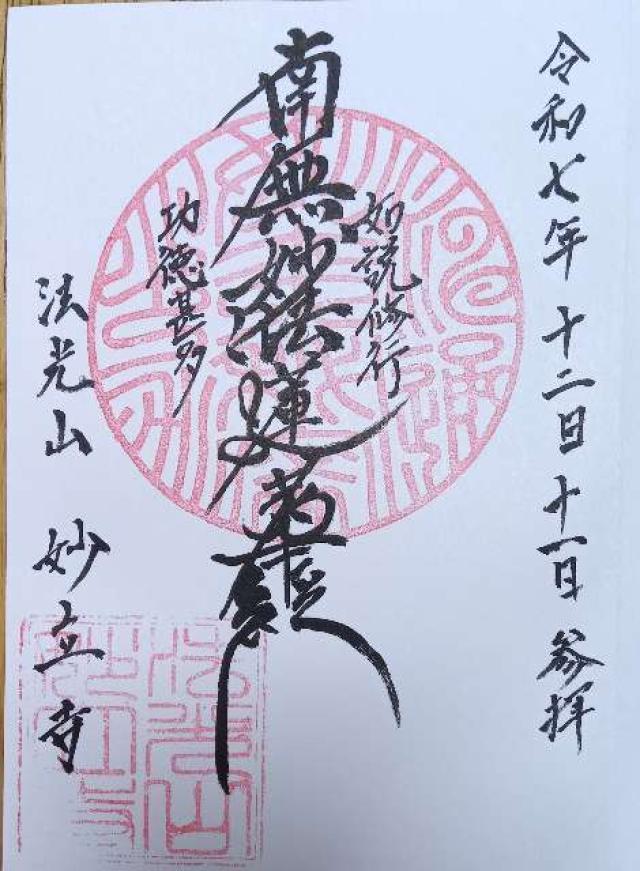 令和七年十二月十一日 参拝
如説修行
南無妙法蓮華経
功徳甚多
法光山 妙立寺
法光山
妙立寺